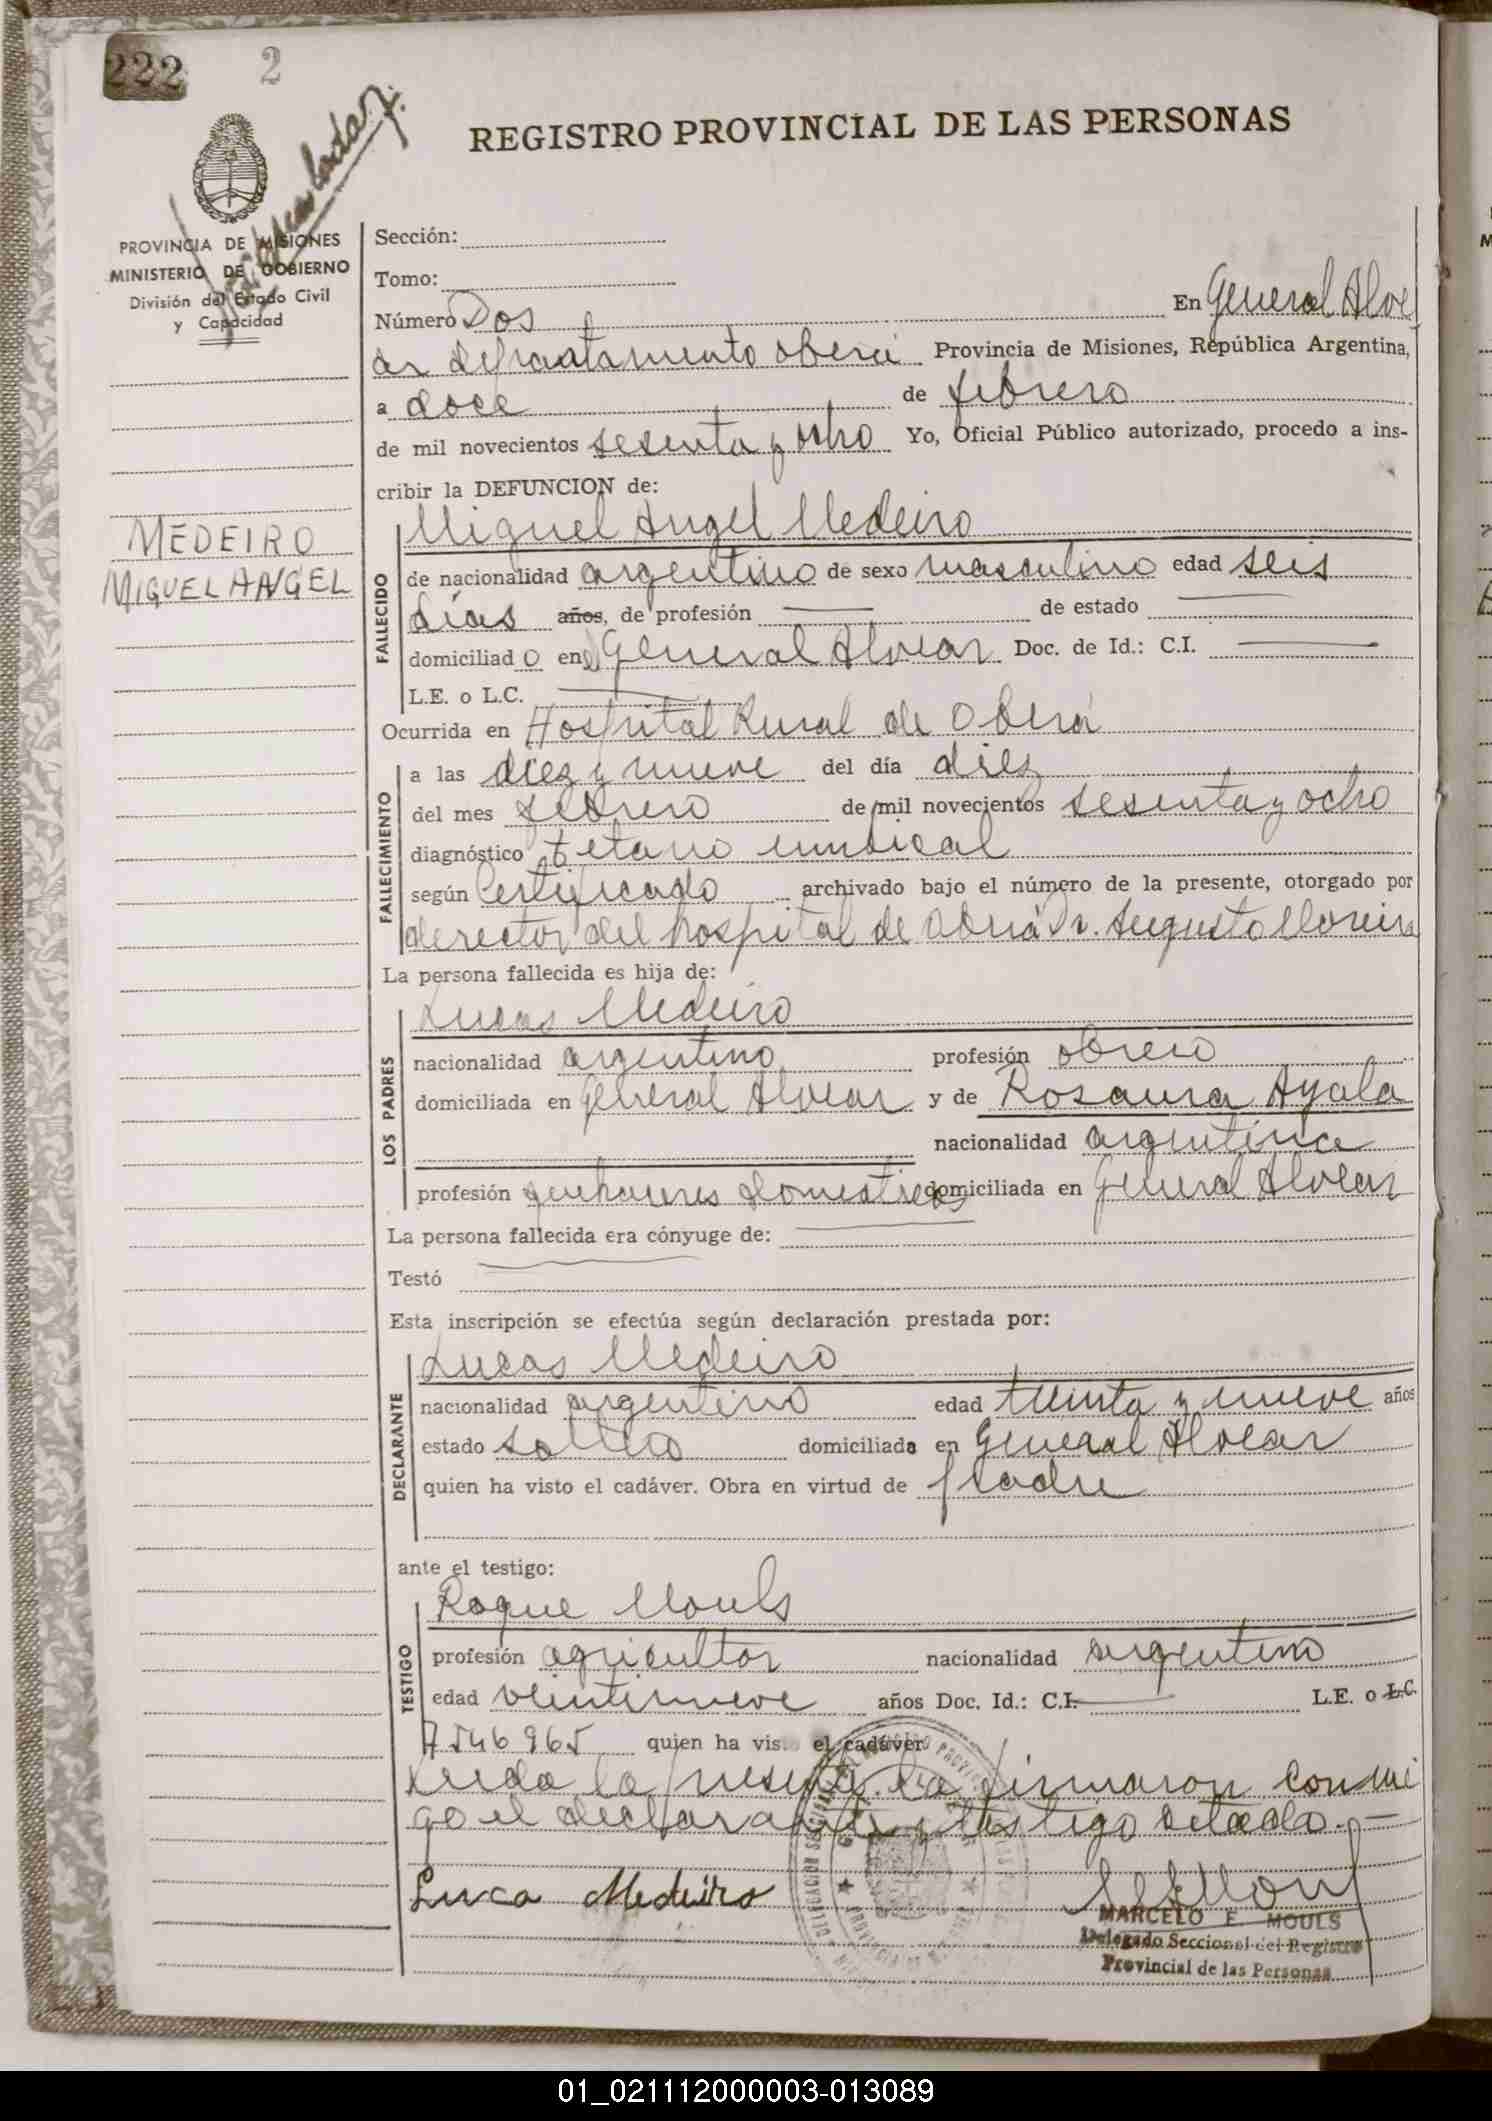 222 2
REGISTRO PROVINCIAL DE LAS PERSONAS
PROVINCIA DE MISIONES
MINISTERIO DE GOBIERNO
División del Estado Civil
y Capacidad
MEDEIRO
MIGUEL ANGEL
Sección:
Tomo:
Número Dos En General Alve
ar departamento Oberá Provincia de Misiones, República Argentina,
a doce de febrero
de mil novecientos sesenta y ocho Yo, Oficial Público autorizado, procedo a ins-
cribir la DEFUNCION de:
FALLECIDO
Miguel Angel Medeiro
de nacionalidad argentino de sexo masculino edad seis
días años, de profesión de estado
domiciliado en General Alvear Doc. de Id.: C.I.
L.E. o L.C.
Ocurrida en Hospital Rural de Oberá
FALLECIMIENTO
a las diez y nueve del día diez
del mes febrero de mil novecientos sesenta y ocho
diagnóstico tetano umbical
según Certificado archivado bajo el número de la presente, otorgado por
derector del hospital de Oberá Dr. Augusto Moreira
La persona fallecida es hija de:
LOS PADRES
Lucas Medeiro
nacionalidad argentino profesión obrero
domiciliada en General Alvear y de Rosaura Ayala
nacionalidad argentina
profesión domesticos domiciliada en General Alvear
La persona fallecida era cónyuge de:
Testó
Esta inscripción se efectúa según declaración prestada por:
DECLARANTE
Lucas Medeiro
nacionalidad argentino edad treinta y nueve años
estado soltero domiciliado en General Alvear
quien ha visto el cadáver. Obra en virtud de padre
ante el testigo:
TESTIGO
Roque Mouls
profesión agricultor nacionalidad argentino
edad veintinueve años Doc. Id.: C.I. L.E. o L.C.
7546965 quien ha visto el cadáver
Leida la presente la firmaron conmi
go el declarante y testigo citado.-
Luca Medeiro
MARCELO E. MOULS
Delegado Seccional del Registro
Provincial de las Personas
01_021112000003-013089